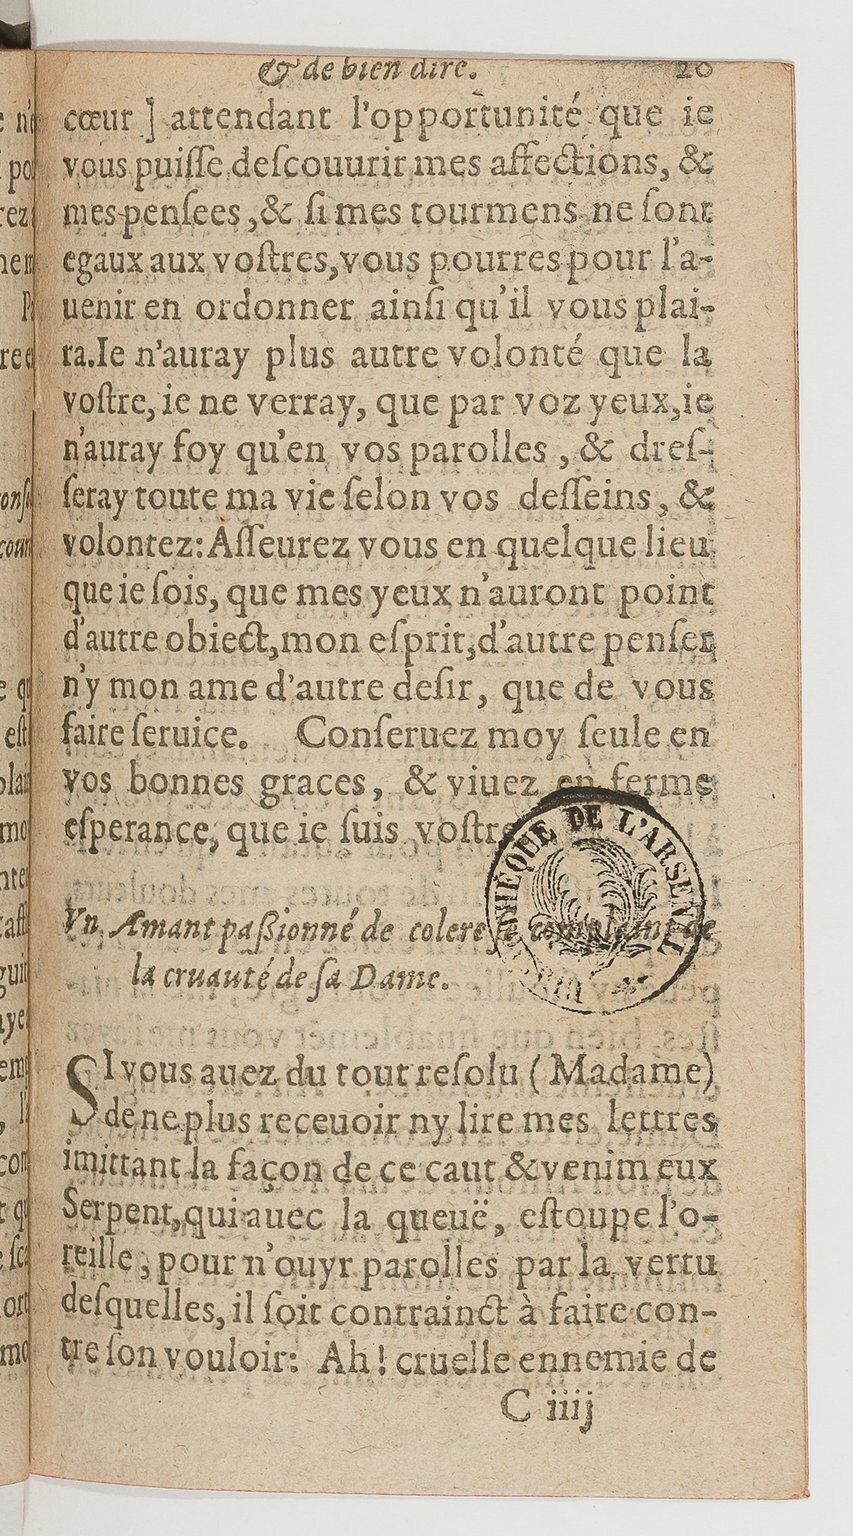 & de bien dire. 20
cœur ] attendant l'opportunité que ie
vous puiſſe deſcouurir mes affections, &
mes penſees, & ſi mes tourmens ne ſont
egaux aux voſtres, vous pourres pour l'a-
uenir en ordonner ainſi qu'il vous plai-
ra. Ie n'auray plus autre volonté que la
voſtre, ie ne verray, que par voz yeux, ie
n'auray foy qu'en vos parolles, & dreſ-
ſeray toute ma vie ſelon vos deſſeins, &
volontez: Aſſeurez vous en quelque lieu
que ie ſois, que mes yeux n'auront point
d'autre obiect, mon eſprit, d'autre penſer
n'y mon ame d'autre deſir, que de vous
faire ſeruice. Conſeruez moy ſeule en
vos bonnes graces, & viuez en ferme
eſperance, que ie ſuis voſtre
Vn Amant paßionné de colere ſe complaint de
la cruauté de ſa Dame.
SI vous auez du tout reſolu (Madame)
de ne plus receuoir ny lire mes lettres
imittant la façon de ce caut & venimeux
Serpent, qui auec la queuë, eſtoupe l'o-
reille, pour n'ouyr parolles par la vertu
deſquelles, il ſoit contrainct à faire con-
tre ſon vouloir: Ah! cruelle ennemie de
C iiij
DE L'ARSENAL